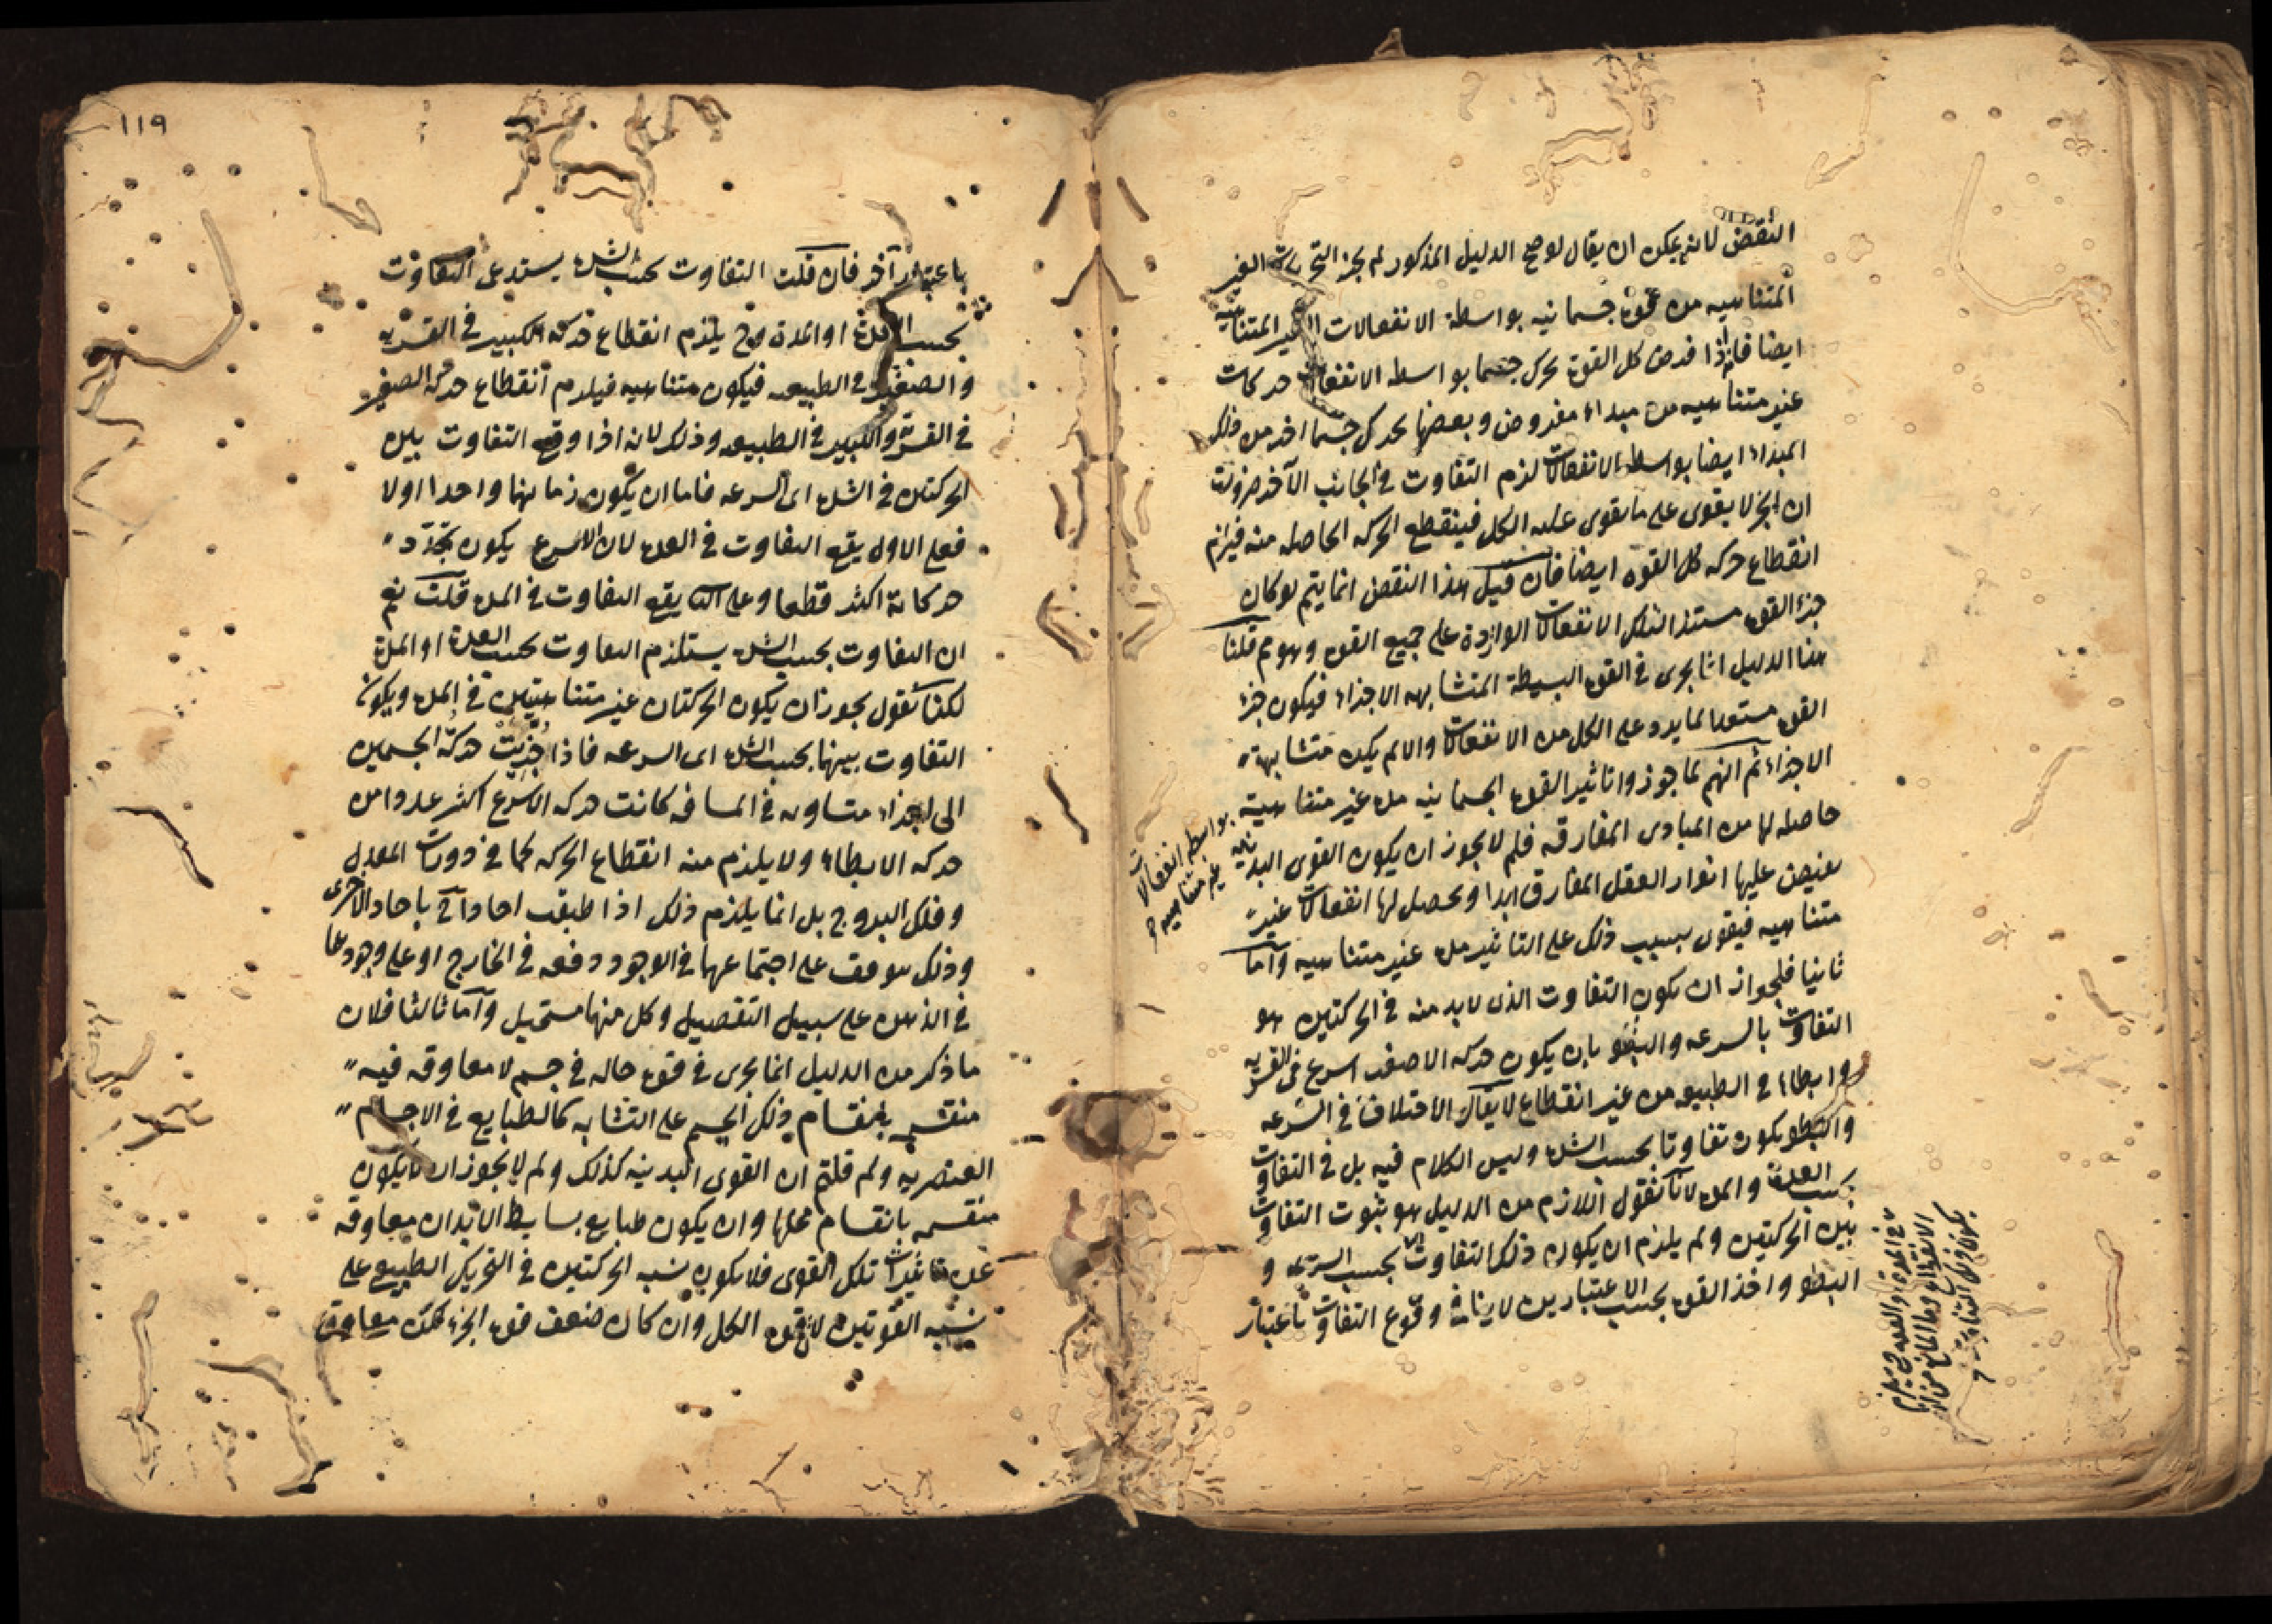 النقض لانه يمكن ان يقال لو صح الدليل المذكور لم يجز التحريكات الغير
المتناهيه من قوة جسمانيه بواسطة الانفعالات الغير المتناهية
ايضا فانه اذا فرض كل القوة تحرك جسما بواسطه الانفعالات حركات
غير متناهيه من مبداء مفروض وبعضها تحرك جسما اخر من ذلك
المبداء ايضا بواسطه الانفعالات لزم التفاوت في الجانب الآخر ضرورت
ان الجزء لا يقوى على ما يقوى عليه الكل فينقطع الحركه الحاصله منه فيلزم
انقطاع حركه كل القوه ايضا فان قيل هذا النقض انما يتم لو كان
جزء القوة مستعدا لتلك الانفعالات الواردة على جميع القوه وهو مم قلنا
هذا الدليل انما يجرى في القوة البسيطة المتشابهه الاجزاء فيكون جزء
القوة مستعدا لما يرد على الكل من الانفعالات والا لم يكن متشابهة
الاجزاء ثم انهم لما جوزوا تاثير القوة الجسمانيه مدة غير متناهية بواسطه انفعالات
غير متناهيه
حاصله لها من المبادى المفارقه فلم لا يجوز ان يكون القوى البدنيه
يفيض عليها انوار العقل المفارق ابدا ويحصل لها انفعالات غير
متناهيه فيقوى بسبب ذلك على التاثير مدة غير متناهيه واما
ثانيا فلجواز ان يكون التفاوت الذى لا بد منه في الحركتين هو
التفاوت بالسرعه والبطؤ بان يكون حركه الاصغر اسرع في القسريه
وابطاء في الطبيعه من غير انقطاع لا يقال الاختلاف في السرعه
والبطو يكون تفاوتا بحسب الشدة وليس الكلام فيه بل في التفاوت
بحسب العدة والمدة لانا نقول اللازم من الدليل هو ثبوت التفاوت
بين الحركتين ولم يلزم ان يكون ذلك التفاوت الا بحسب السرعه و
البطو واخذ القوة بحسب الاعتبارين لا ينافي وقوع التفاوت باعتبار
١١٩
باعتبار آخر فان قلت التفاوت بحسب الشدة يستدعى التفاوت
بحسب العدة او المدة وح يلزم انقطاع حركة الكبير في القسريه
والصغير في الطبيعه فيكون متناهيه فيلزم انقطاع حركة الصغير
في القسرية والكبير في الطبيعه وذلك لانه اذا وقع التفاوت بين
الحركتين في الشدة اى السرعه فاما ان يكون زمانهما واحدا اولا
فعلى الاول يقع التفاوت في العدة لان الاسرع يكون تجدد
حركاته اكثر قطعا وعلى الثانى يقع التفاوت في المدة قلت نعم
ان التفاوت بحسب الشدة يستلزم التفاوت بحسب العدة او المدة
لكنا نقول يجوز ان يكون الحركتان غير متناهيتين في المدة ويكون
التفاوت بينهما بحسب الشدة اى السرعه فاذا جزيت حركة الجسمين
الى اجزاء متساويه في المسافه كانت حركه الاسرع اكثر عددا من
حركه الابطاء ولا يلزم منه انقطاع الحركه كما في دورات المعدل
وفلك البروج بل انما يلزم ذلك اذا طبقت احاد احديهما باحاد الاخرى
وذلك موقف على اجتماعها في الوجود دفعه في الخارج او على وجودها
في الذهن على سبيل التفصيل وكل منهما مستحيل واما ثالثا فلان
ما ذكر من الدليل انما يجرى في قوة حاله في جسم لا معاوقه فيه
منقسمه بانقسام ذلك الجسم على التشابه كالطبايع في الاجسام
العنصريه ولم قلتم ان القوى البدنيه كذلك ولم لا يجوز ان لا يكون
منقسمه بانقسام محلها وان يكون طبايع بسايط الابدان معاوقه
عن تاثيرات تلك القوى فلا يكون نسبه الحركتين في التحريك الطبيعى على
نسبه القوتين لان قوة الكل وان كان ضعف قوة الجزء لكن معاوق